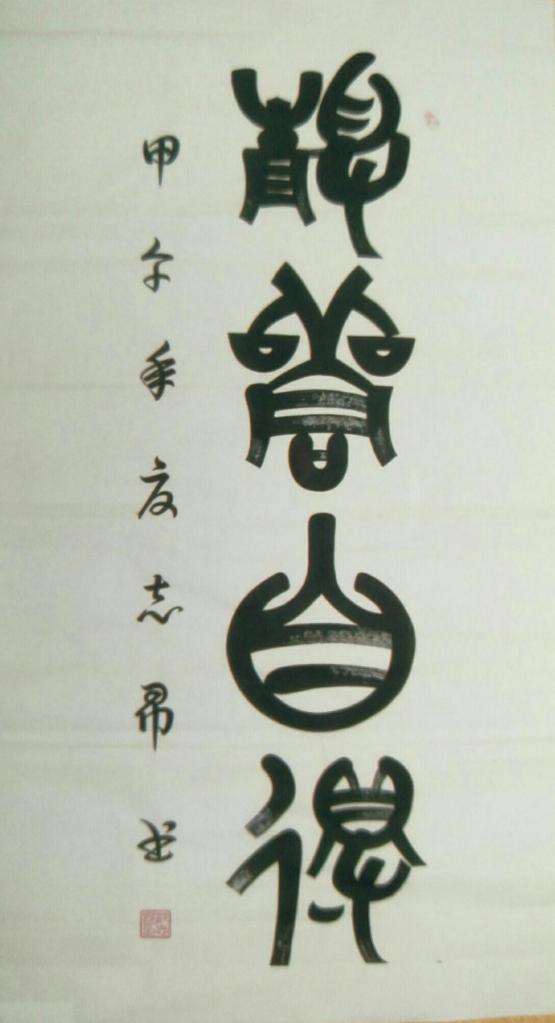 靜觀自得
甲午年夏志昂书